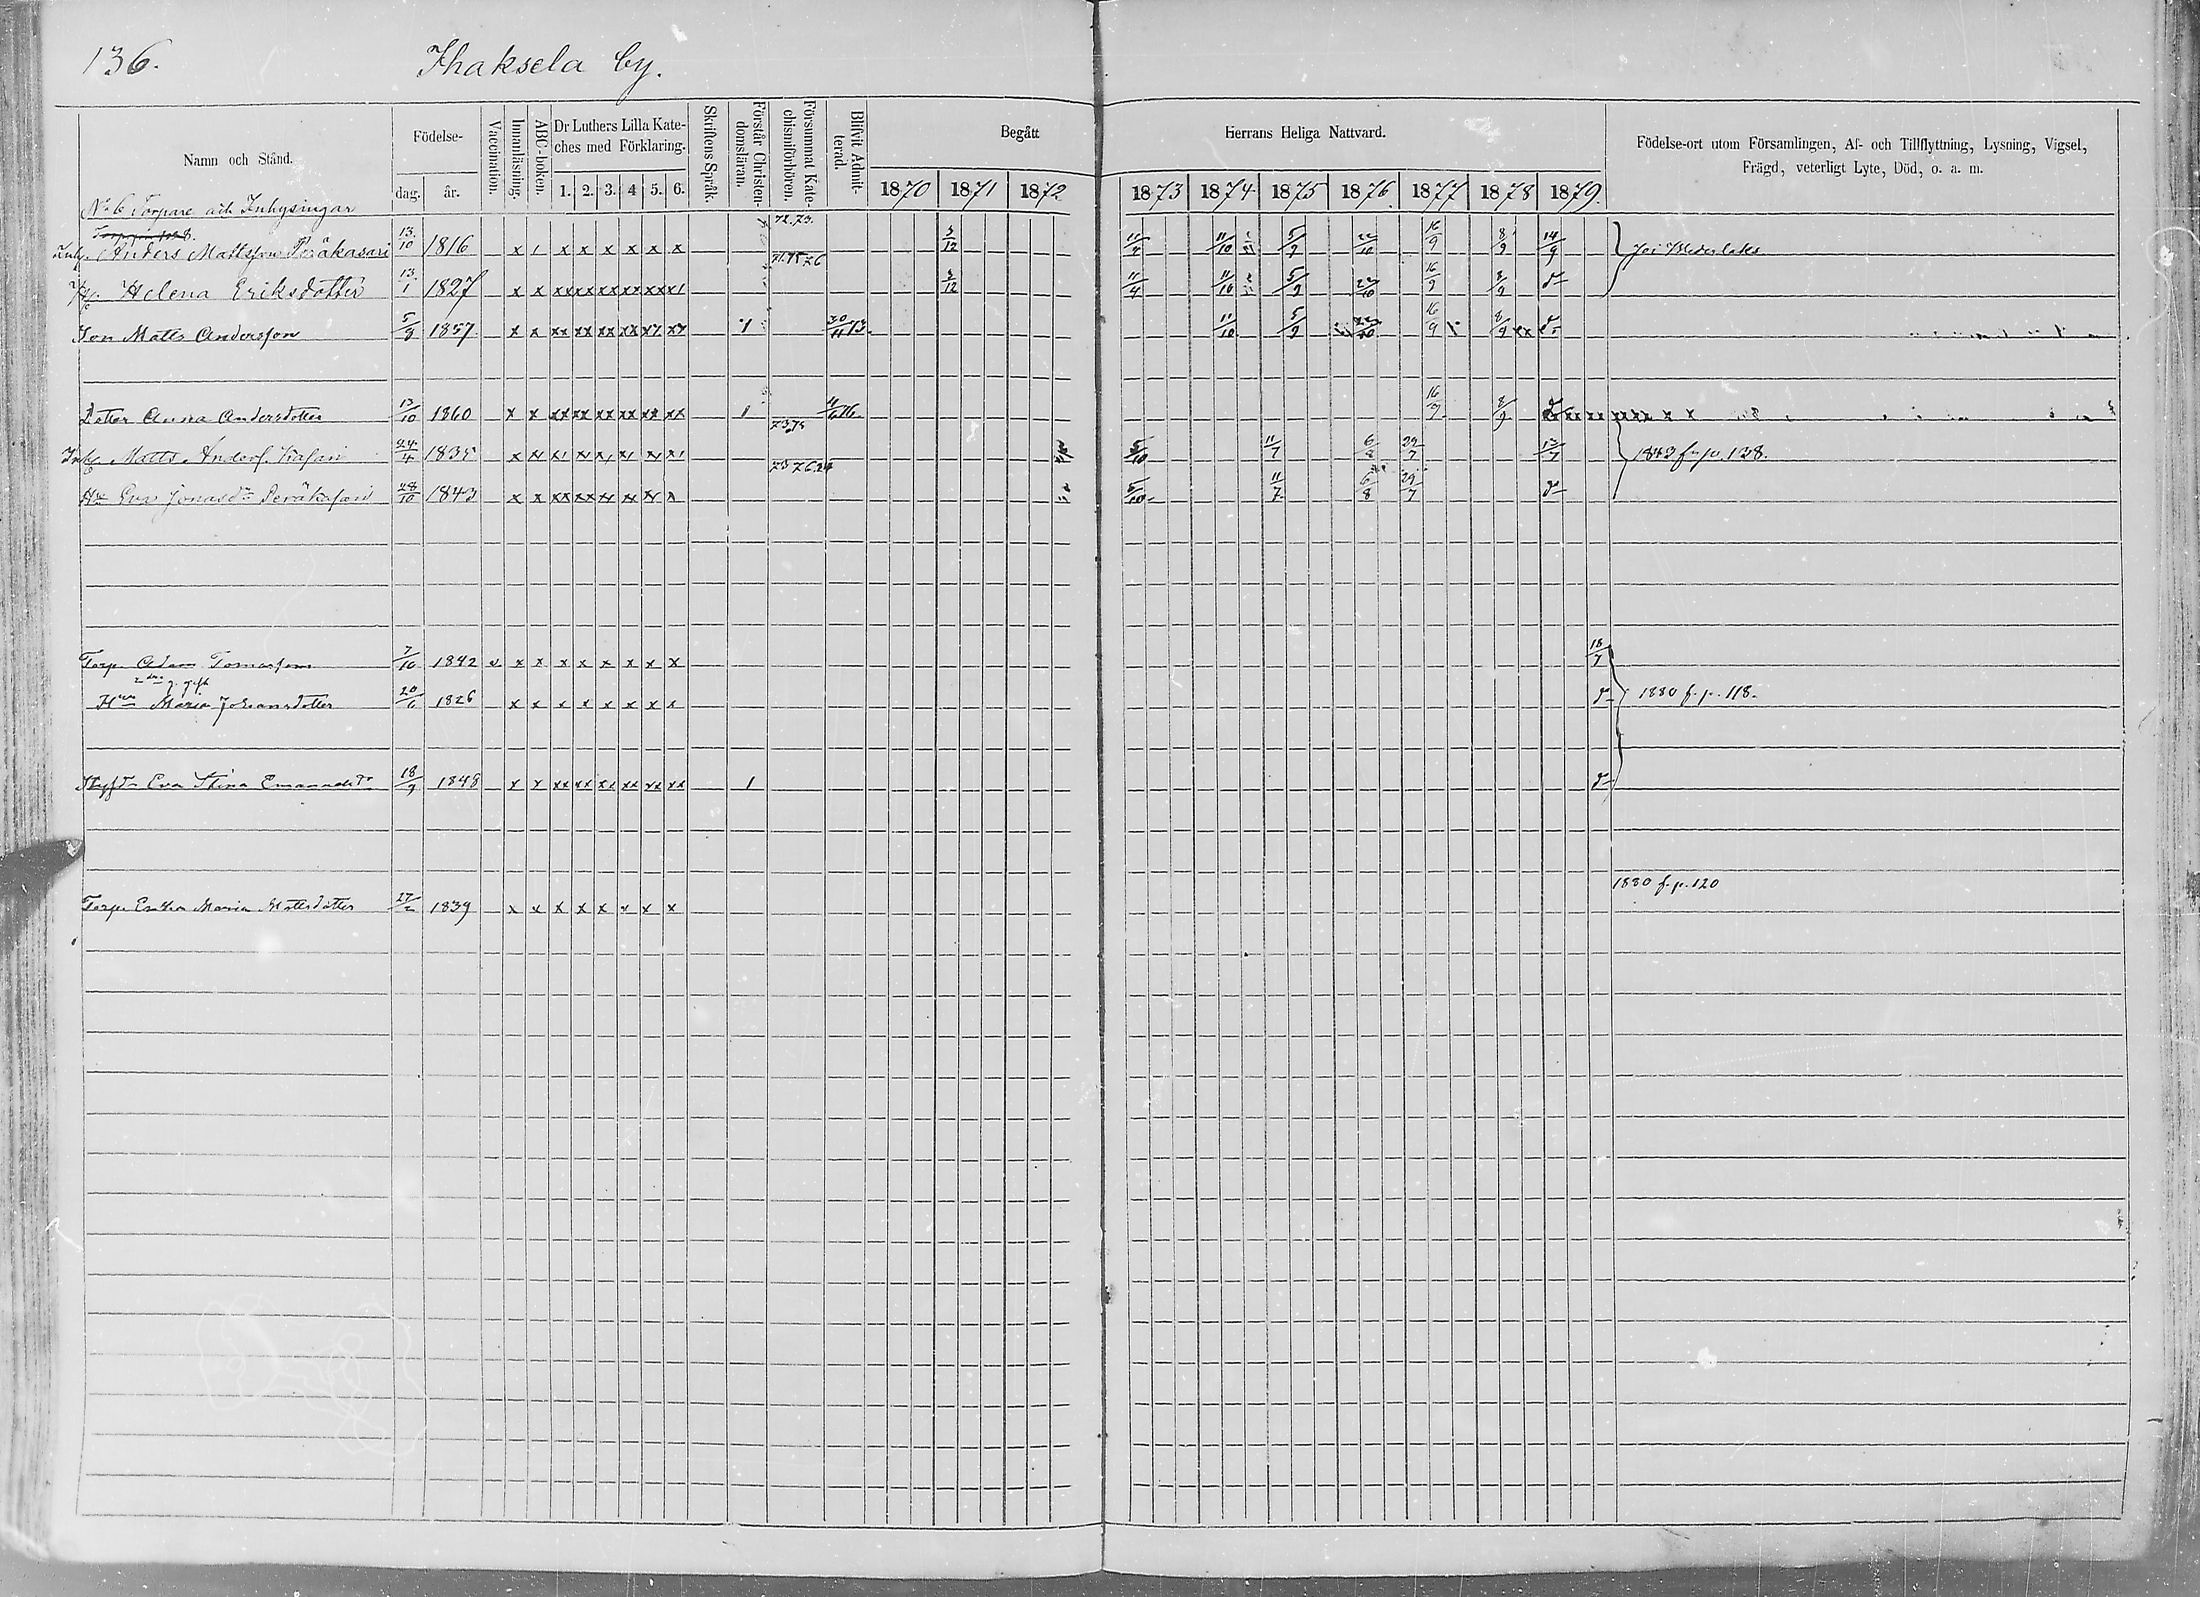 136.
Ihaksela by.
Namn och Stånd.
Födelse-
dag. år.
Vaccination.
Innanläsning.
ABC-boken.
Dr Luthers Lilla Kate-
ches med Förklaring.
1. 2. 3. 4 5. 6.
Skriftens Språk.
Förstår Christen-
domsläran.
Försummat Kate-
chismiförhören.
Blifvit Admit-
terad.
Begått Herrans Heliga Nattvard.
1870 1871 1872 1873 1874 1875 1876 1877 1878 1879
Födelse-ort utom Församlingen, Af- och Tillflyttning, Lysning, Vigsel,
Frägd, veterligt Lyte, Död, o. a. m.
No 6 Torpare och Inhysingar
72.73.
Inh. Anders Mattsson 13/10 1816 x 1 x x x x x x 3/12 11/4 11/10 5/9 22/10 16/9 8/9 14/9
H. Helena Eriksdotter 13/1 1827 x x xx xx xx xx xx x1 3/12 11/4 11/10 5/9 22/10 16/9 8/9 d-
Son Matts Andersson 5/9 1857 x x xx xx xx xx xx xx 1 30/11 73. 11/10 5/9 22/10 16/9 8/9 d-
Dotter Anna Andersdotter 13/10 1860 x x xx xx xx xx xx xx 1 16/9 8/9
73,75
Inh. Matts Anders. 24/4 1835 5/10 11/7 6/8 29/7 13/7 1843 f. p. 138.
73 76.
Hu Eva Jonasdr 28/10 1843 x x xx xx xx xx xx x 5/10 11/7 6/8 29/7 d-
Torp. Adam Tomasson 7/10 1842 v x x x x x x x x 18/7
2dra g. gift
Hun Maria Johansdotter 20/6 1826 x x x x x x x x d- 1880 f. p. 118.
Styfdr Eva Stina Emanuelsdr 18/9 1848 x x xx xx xx xx xx xx 1 d-
1880 f. p. 120
Torp. Enkan Maria Mattsdotter 27/2 1839 x x x x x x x x